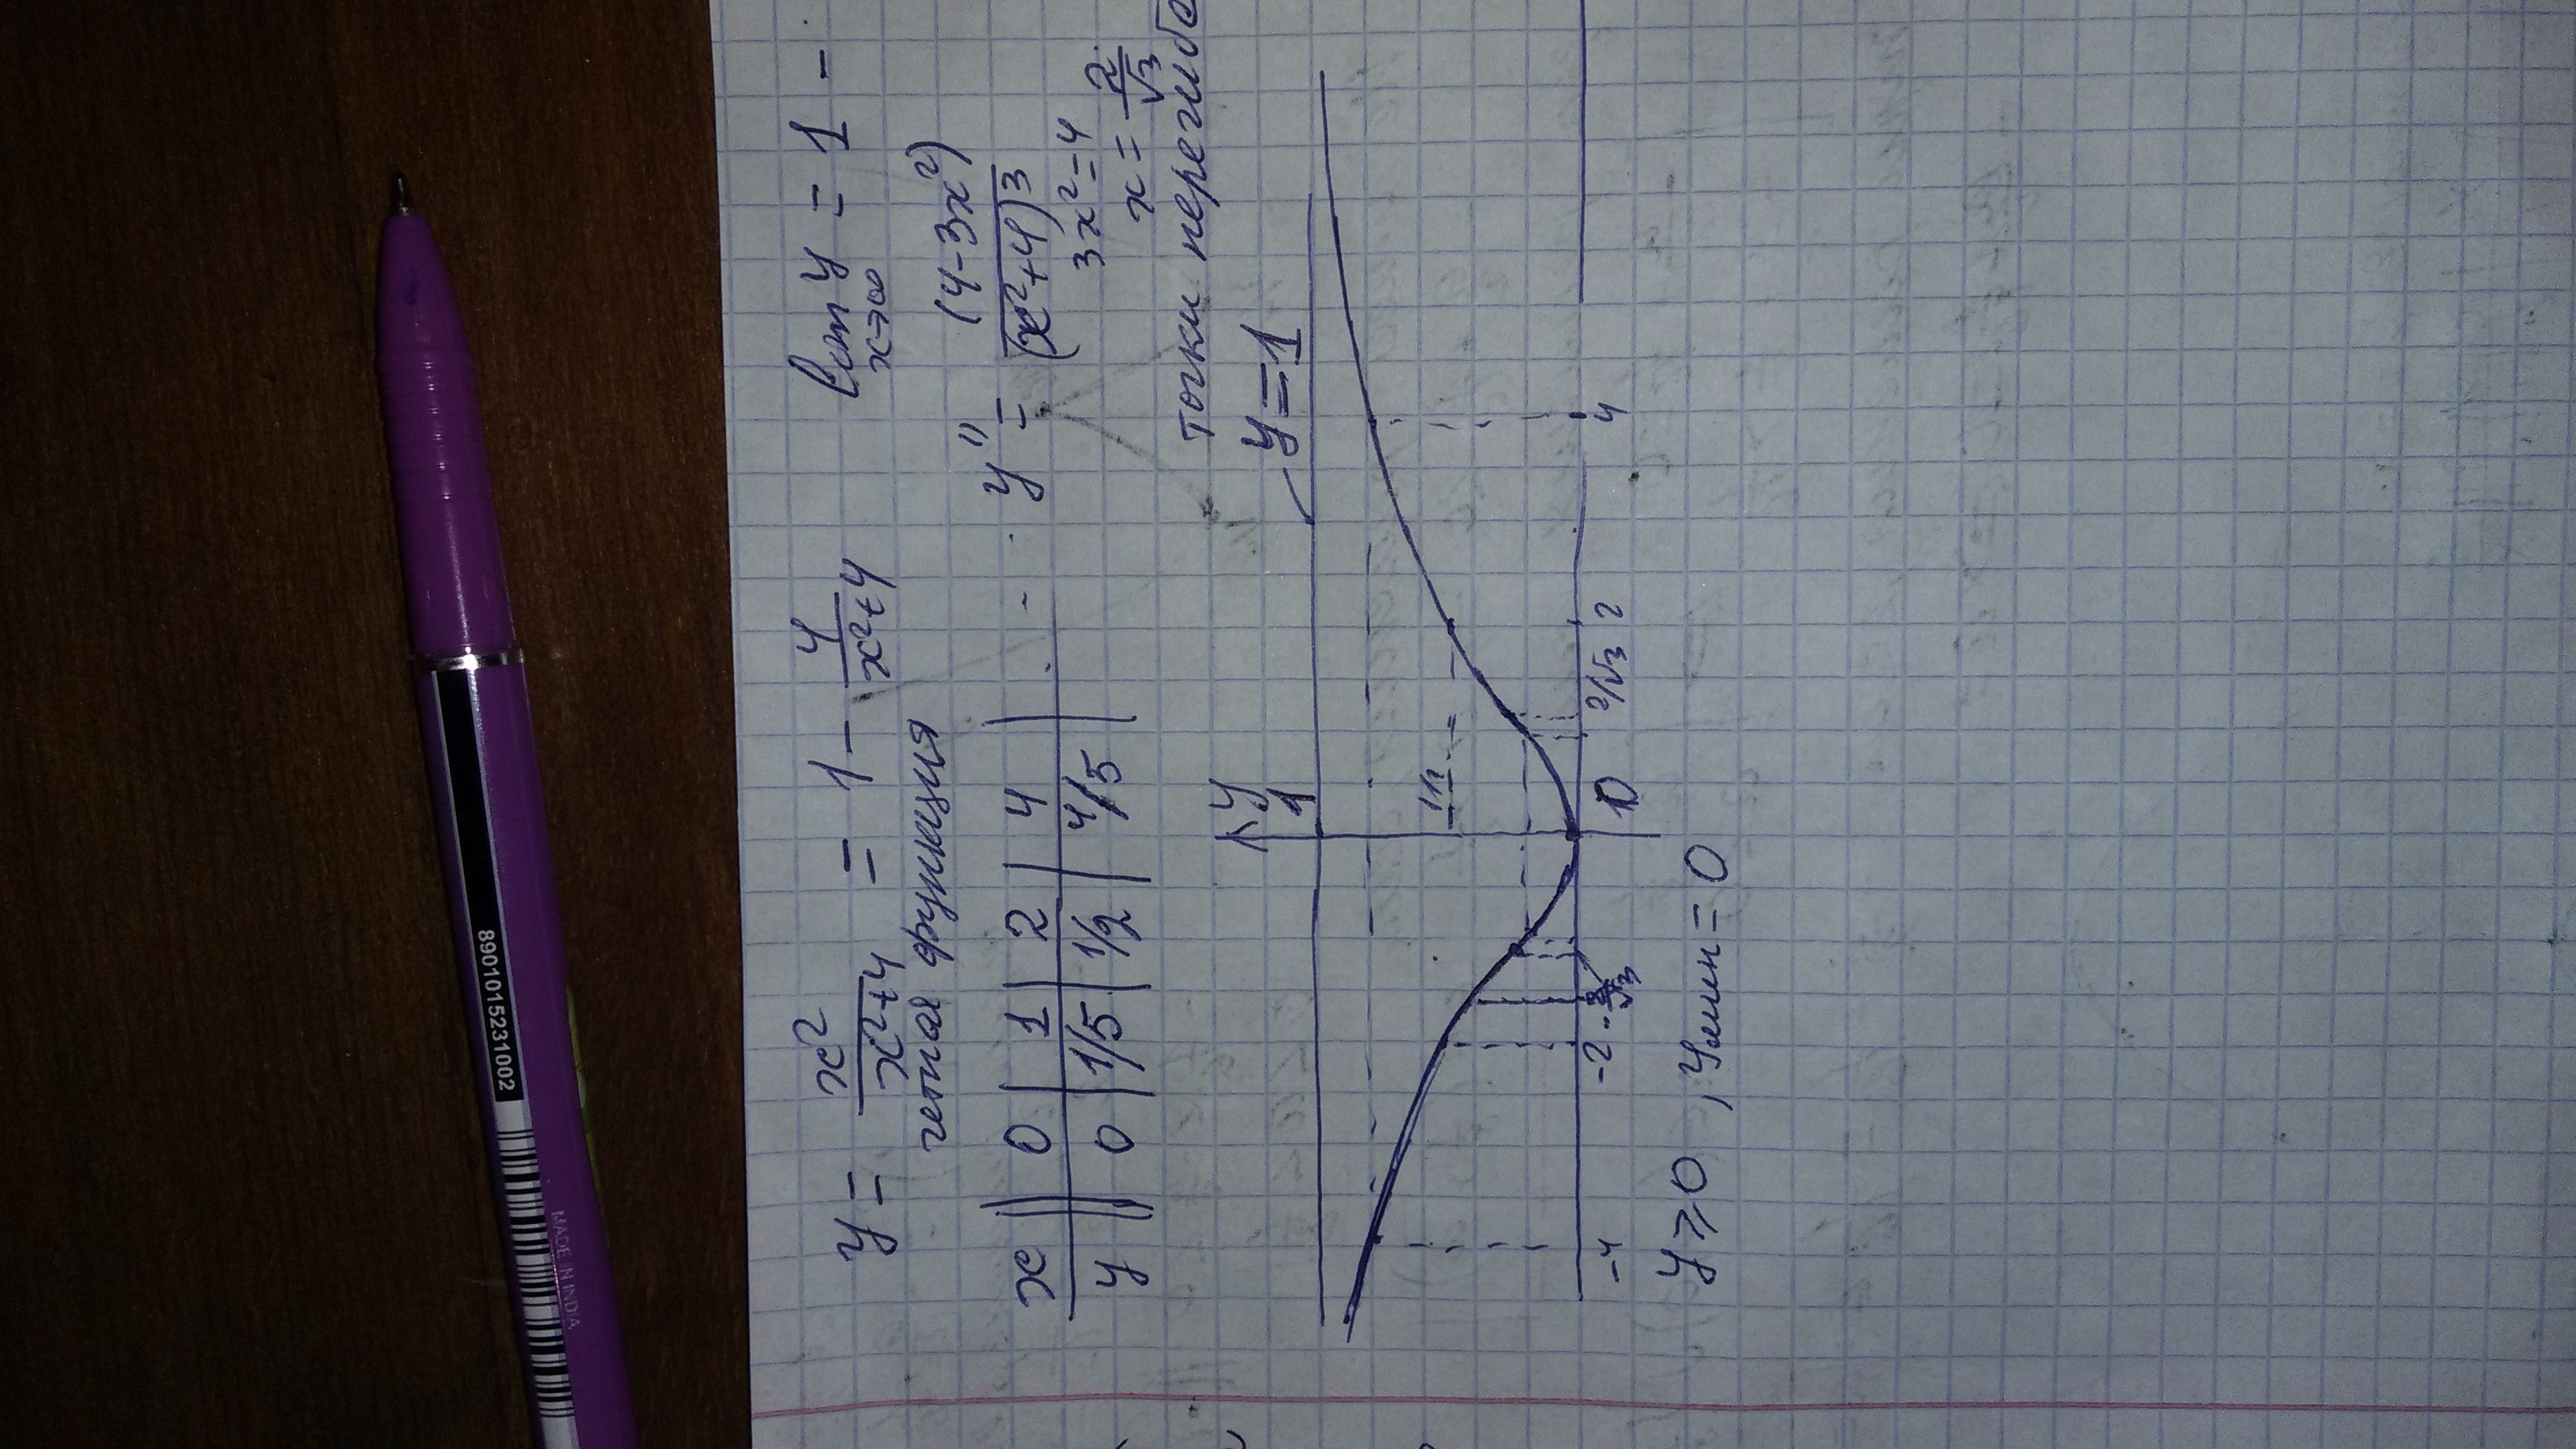 y = x²/(x²+4) = 1 - 4/(x²+4)
lim y = 1 -
x→∞
четная функция
x || 0 | 1 | 2 | 4 |
y || 0 | 1/5 | 1/2 | 4/5 |
y'' = (4-3x²)/(x²+4)³
3x² = 4
x = 2/√3
точки перегиба
y
1
y = 1
-4 -2 0 2/√3 2 4
y ⩾ 0, yмин = 0
8901015231002
MADE IN INDIA